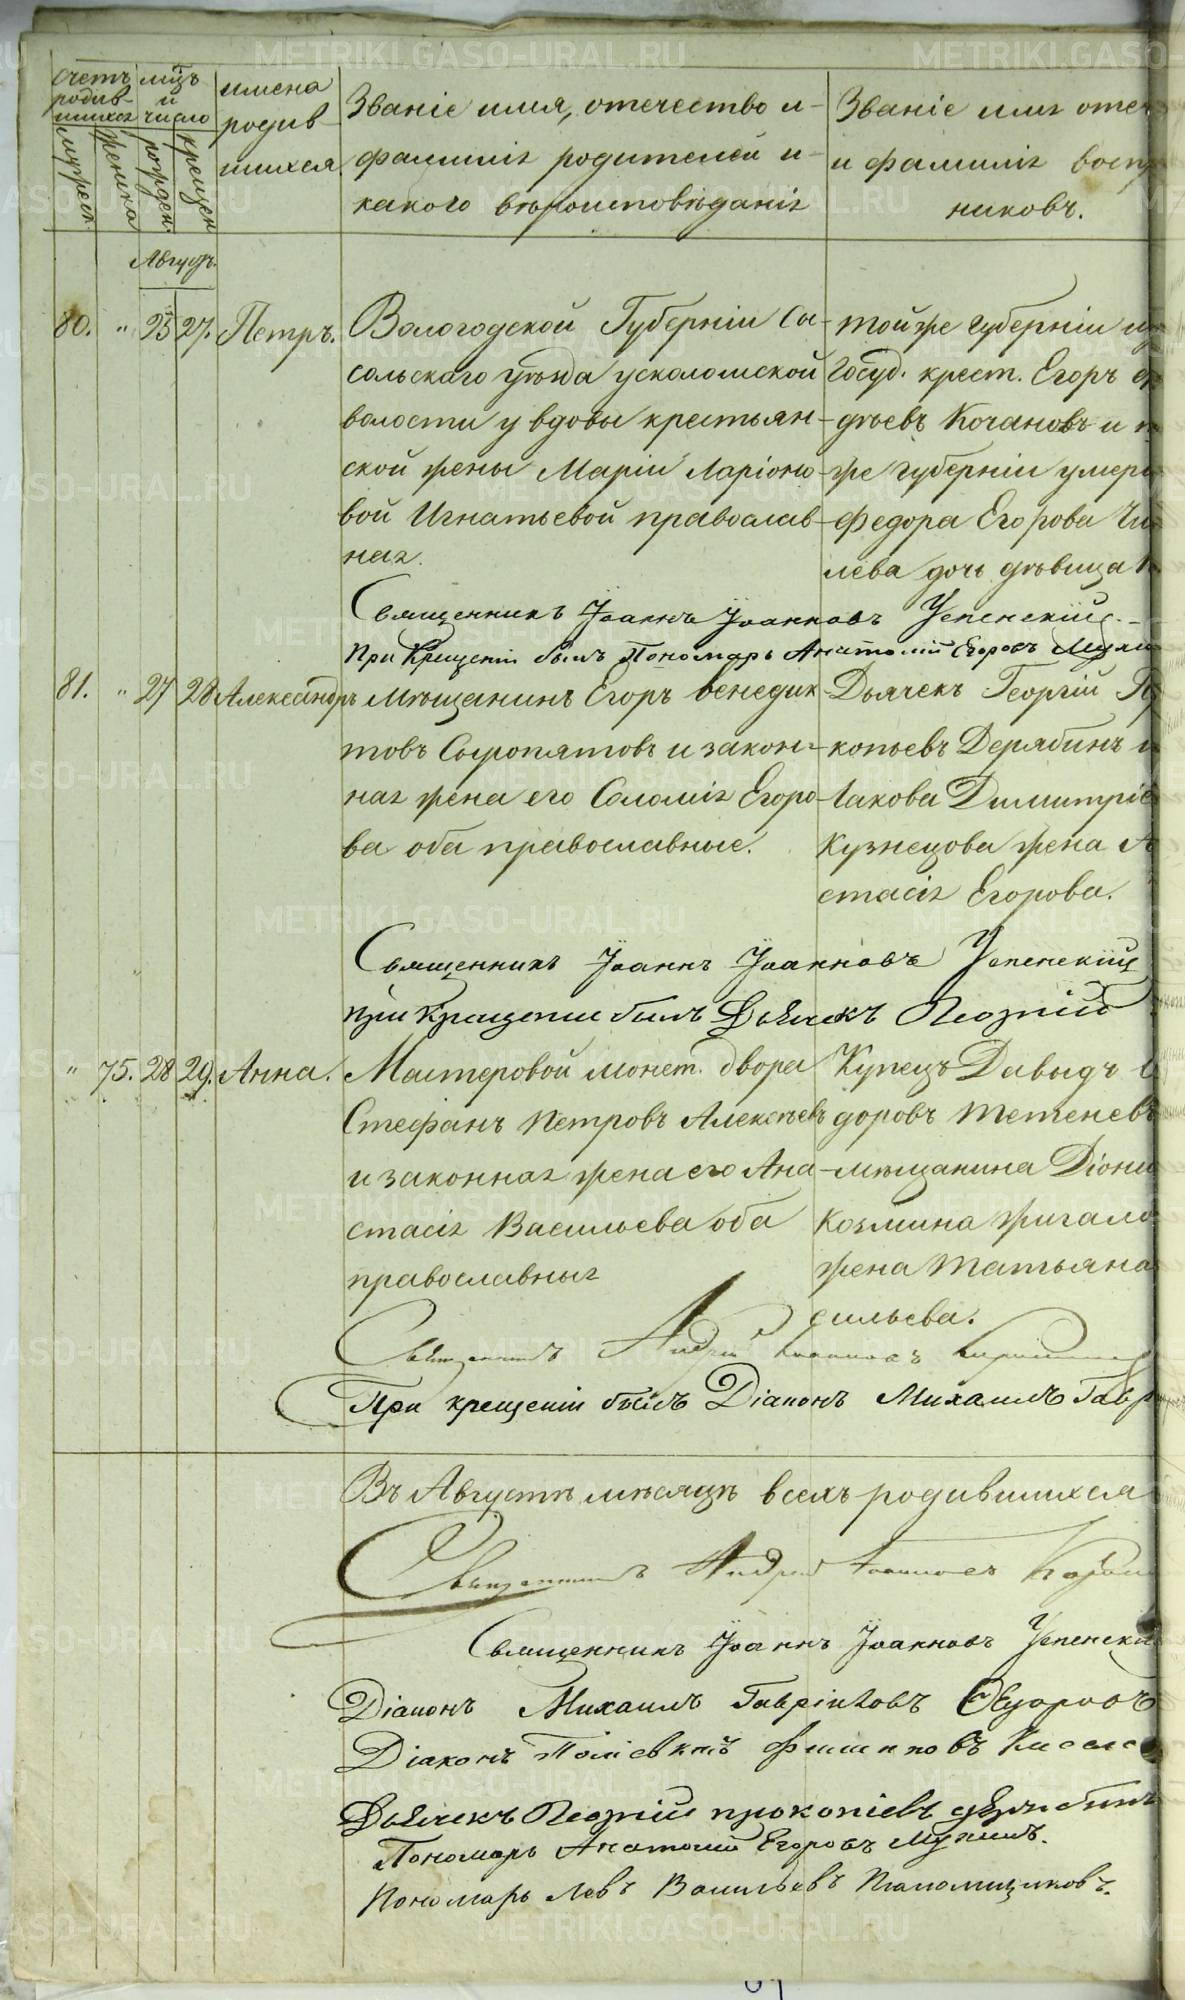 METRIKI.GASO-URAL.RU
счетъ родив- шихся
мцъ и число
имена родив- шихся.
Званіе имя, отечество и фамилія родителей и какого вѣроисповѣданія
Званіе имя отеч
и фамилія воспр
никовъ.
мужеск.
женска
рожден.
крещен
Августъ.
80. " 25 27. Петръ.
Вологодской Губерніи Сы-
сольскаго уѣзда усколомской
волости у вдовы крестьян-
ской жены Маріи Ларіоно-
вой Игнатьевой православ-
ная.
тойже губерніи и
Госуд. крест. Егоръ
дѣевъ Кочановъ и
же губерніи умерш
Федора Егорова
лева дочь дѣвица
Священникъ Іоаннъ Іоанновъ Успенскій.
При Крещеніи былъ Пономарь Анатолій Егоровъ
81. " 27 28 Александръ
Мѣщанинъ Егоръ Венедик-
товъ Сыропятовъ и закон-
ная жена его Соломія Егоро-
ва оба православные.
Дьячекъ Георгій Пр
копьевъ Дерябинъ и
Іакова Димитріе
Кузнецова жена А
стасія Егорова.
Священникъ Іоаннъ Іоанновъ Успенскій
при Крещеніи былъ Дьячекъ Георгій
" 75. 28 29. Анна.
Мастеровой монет. двора
Стефанъ Петровъ Алексѣевъ
и законная жена его Ана-
стасія Васильева оба
православныя
Купецъ Давыдъ
доровъ Тетеневъ
мѣщанина Діони
Козмина Жигало
жена Татьяна
сильева.
Священникъ Андрей Іоанновъ
При крещеніи былъ Діаконъ Михаилъ Гавр
Въ Августѣ мѣсяцѣ всехъ родившихся
Священникъ Андрей Іоанновъ
Священникъ Іоаннъ Іоанновъ Успенскі
Діаконъ Михаилъ Гавріиловъ
Діаконъ Поліевктъ Филиповъ
Дьячекъ Георгій прокопіевъ дерябинъ
Пономарь Анатолій Егоровъ
Пономарь Левъ Васильевъ